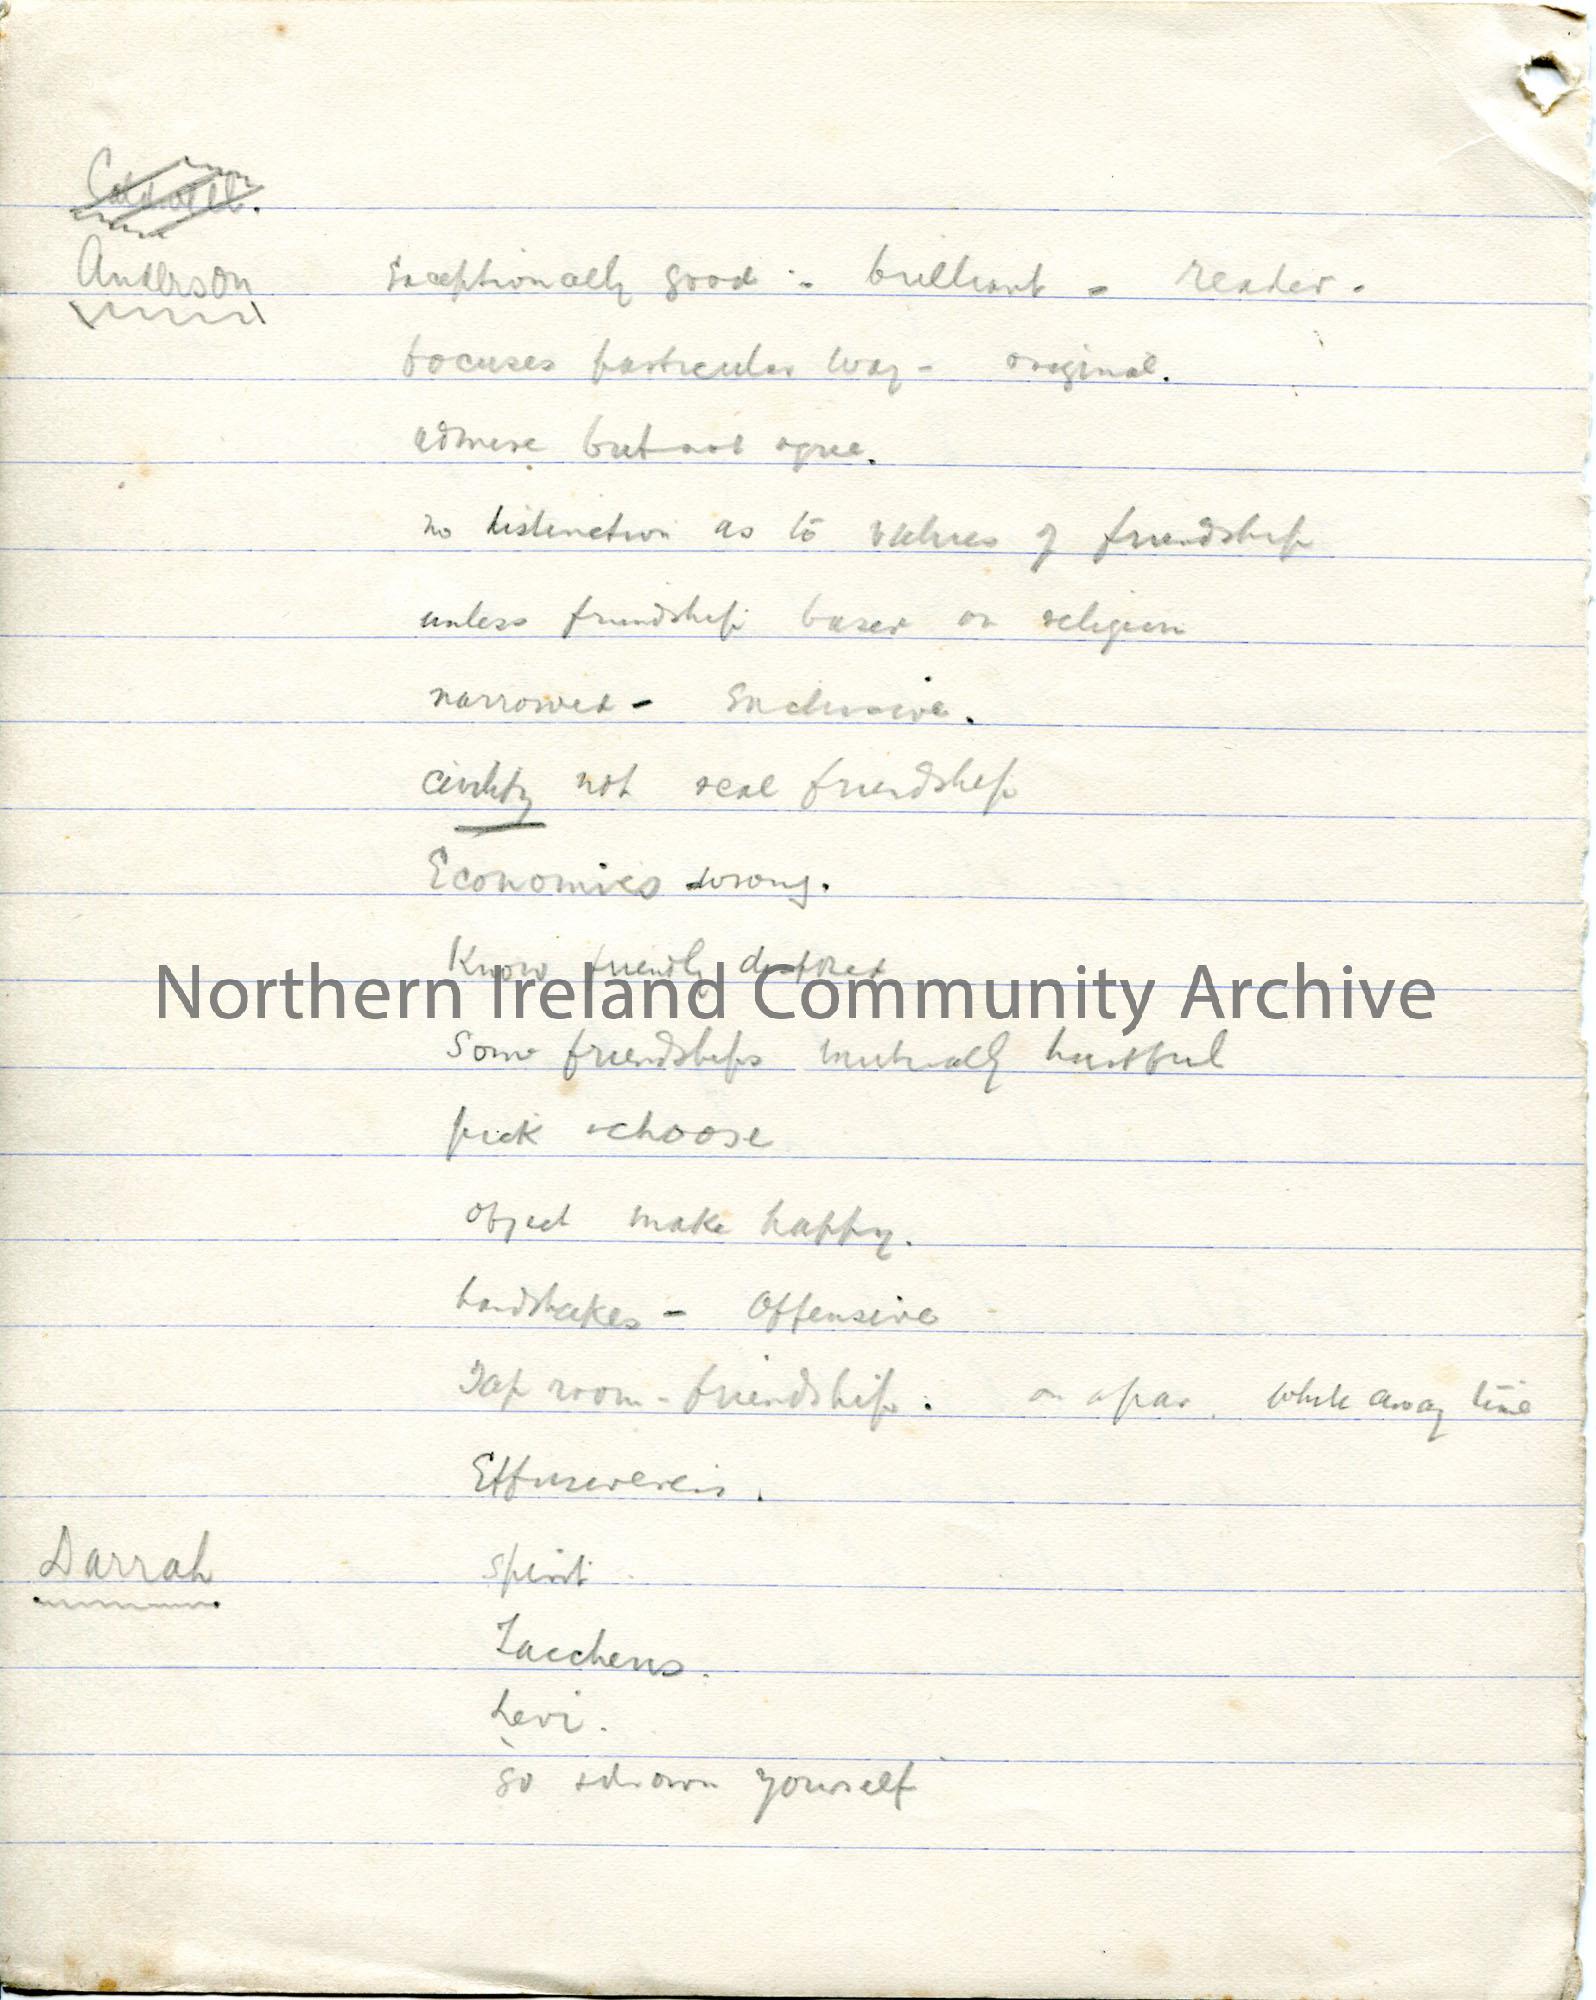 Caldwell.
Anderson Exceptionally good - brilliant - reader.
focuses particular way - original.
admire but not agree.
no distinction as to values of friendship
unless friendship based on religion
narrowed - Exclusive.
civility not real friendship
Economics wrong.
Know friendly
Northern Ireland Community Archive
Some friendships mutually hurtful
pick & choose
object make happy.
handshakes - Offensive
Tap room - friendship. on a par. while away time
Darrah spirit
Zaccheus.
Levi.
go yourself